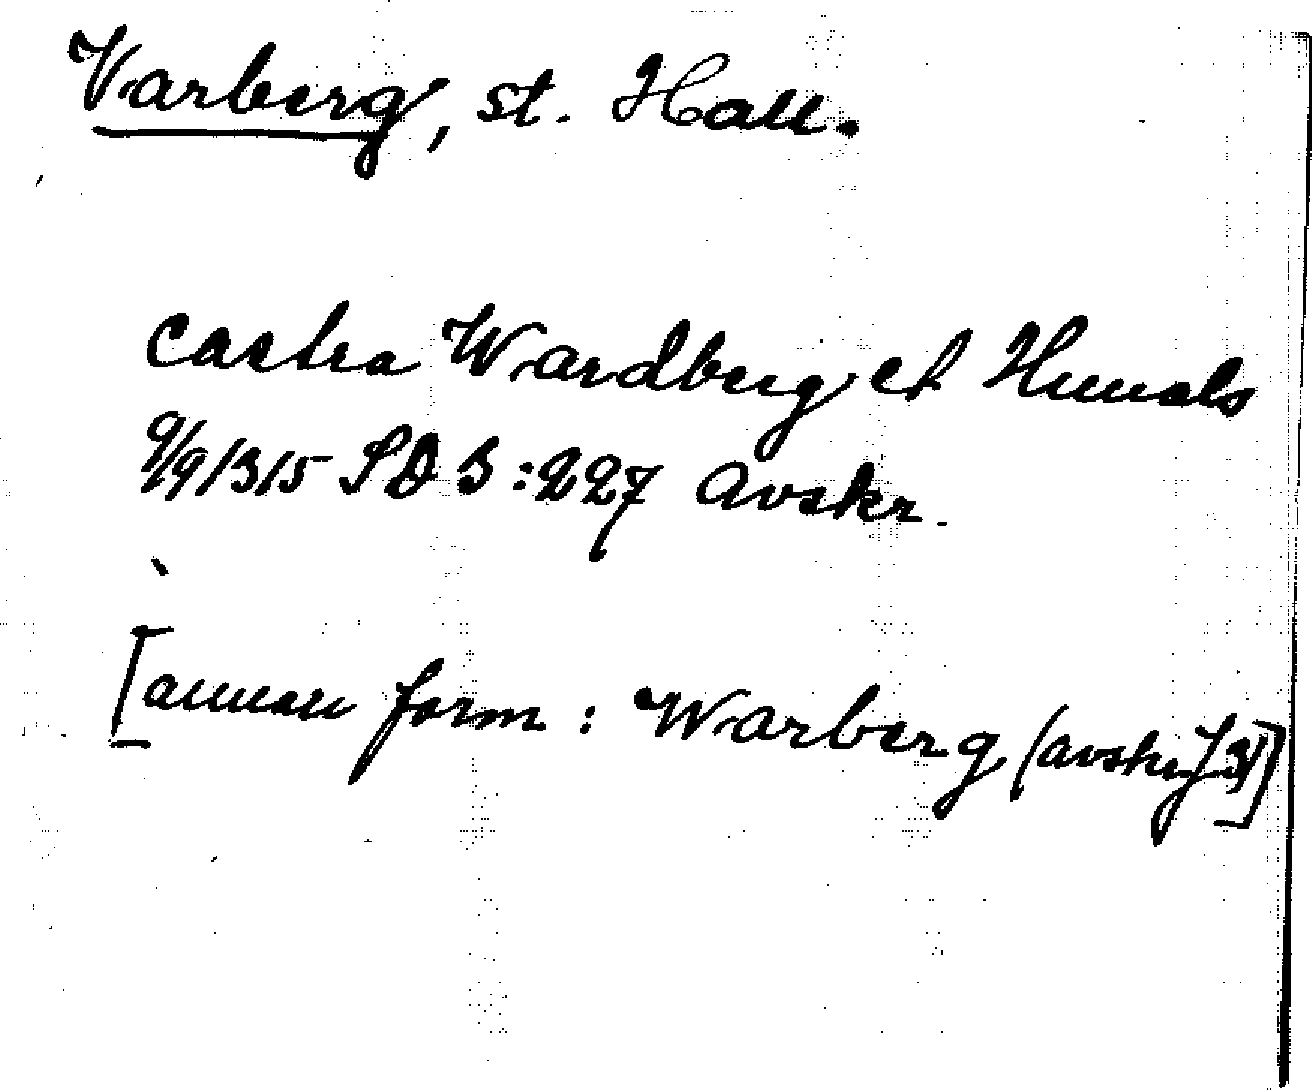 Varberg, st. Hall.
castra Wardberg et Hunals
9/9 1315 SD 3:227 Avskr.
[annan form: Warberg (avskr J 3)]